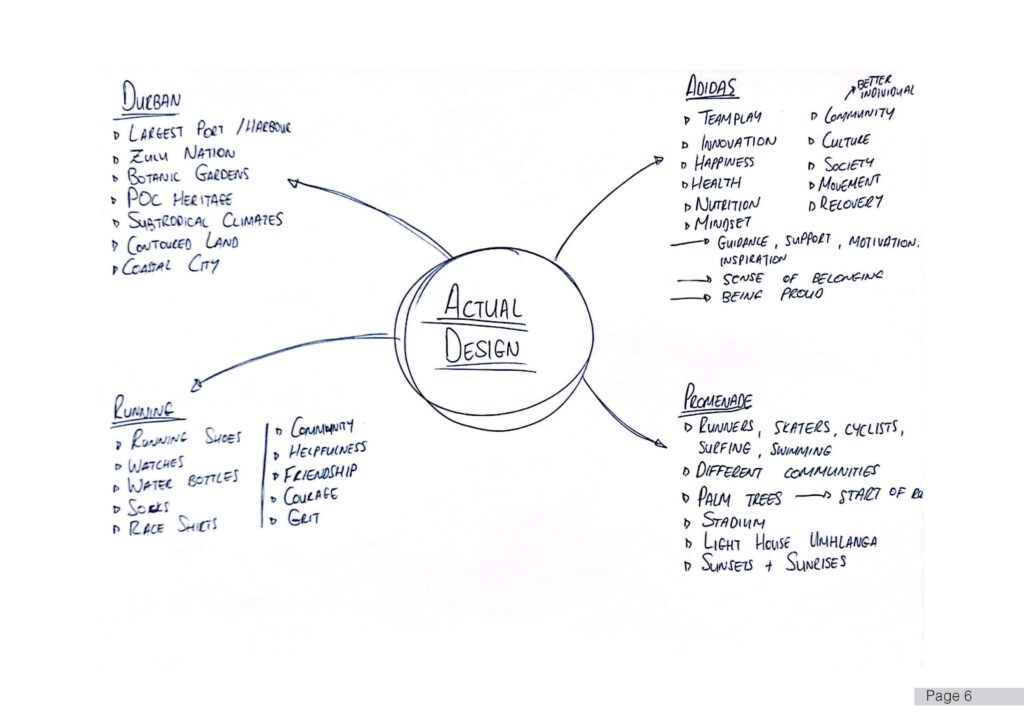 DURBAN
LARGEST PORT / HARBOUR
ZULU NATION
BOTANIC GARDENS
POC HERITAGE
SUBTRODICAL CLIMATES
CONTOURED LAND
COASTAL CITY
ADIDAS
BETTER INDIVIDUAL
TEAMPLAY
INNOVATION
HAPPINESS
HEALTH
NUTRITION
MINDSET
COMMUNITY
CULTURE
SOCIETY
MOVEMENT
RECOVERY
GUIDANCE, SUPPORT, MOTIVATION.
INSPIRATION
SENSE OF BELONGING
BEING PROUD
ACTUAL
DESIGN
RUNNING
RUNNING SHOES
WATCHES
WATER BOTTLES
SOCKS
RACE SHIRTS
COMMUNITY
HELPFULNESS
FRIENDSHIP
COURAGE
GRIT
PROMENADE
RUNNERS, SKATERS, CYCLISTS,
SURFING, SWIMMING
DIFFERENT COMMUNITIES
PALM TREES → START OF
STADIUM
LIGHT HOUSE UMHLANGA
SUNSETS + SUNRISES
Page 6